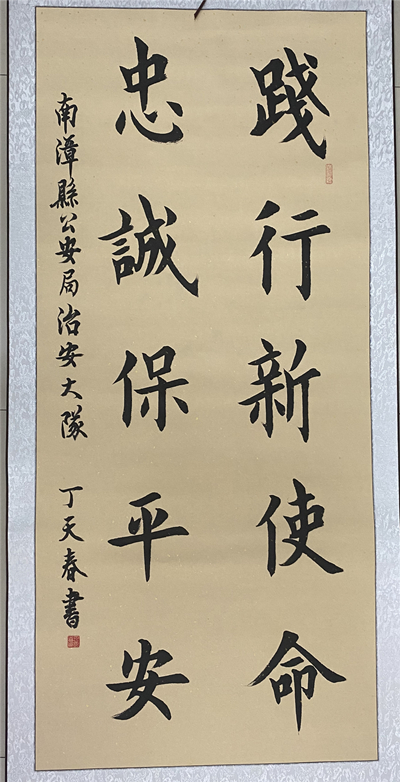 踐行新使命
忠誠保平安
南漳縣公安局治安大隊 丁天春書